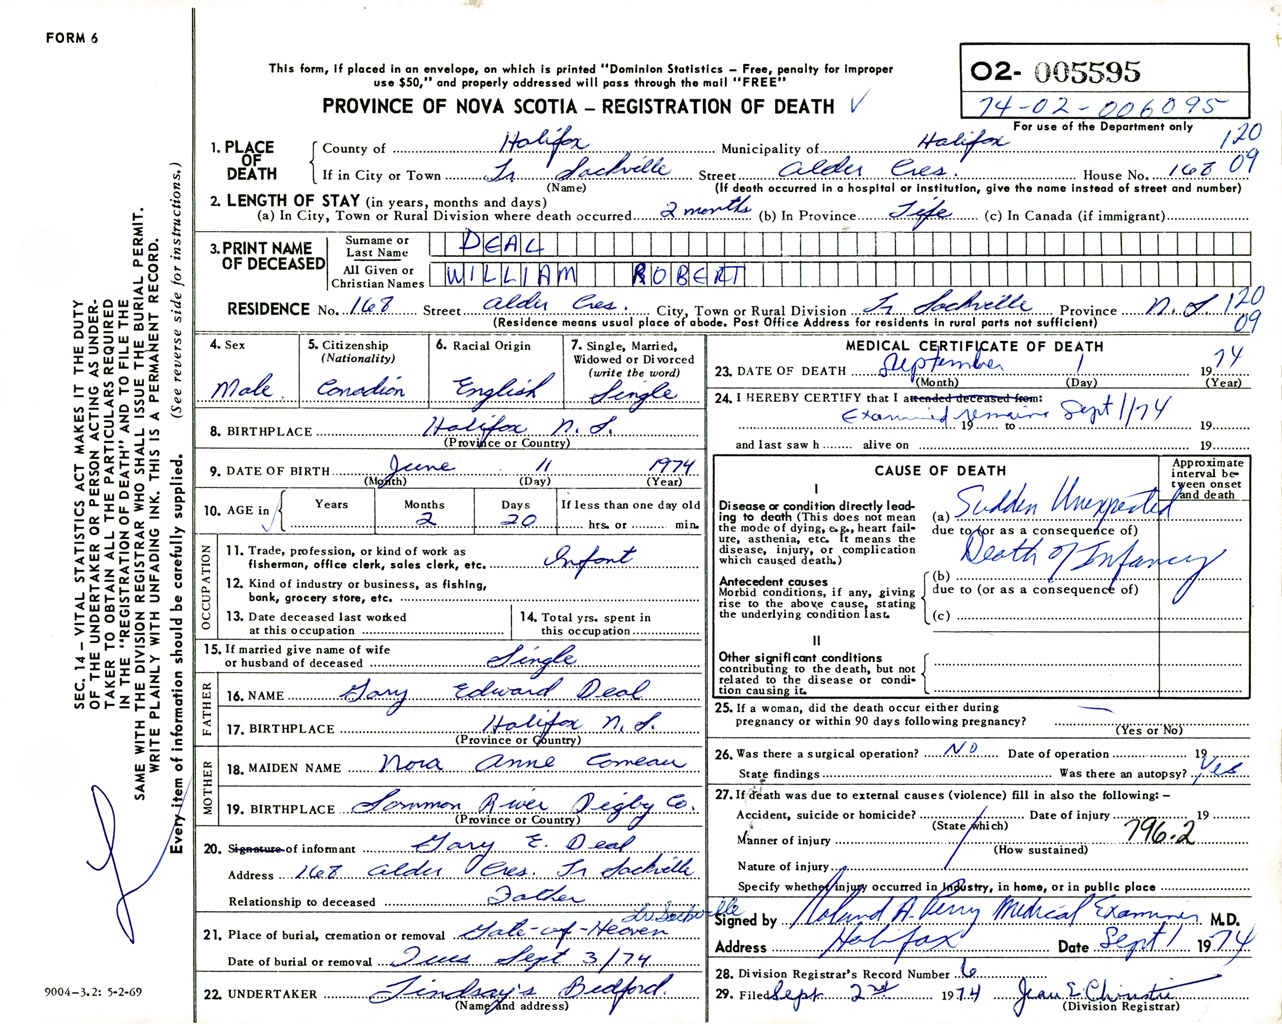 FORM 6
This form, if placed in an envelope, on which is printed "Dominion Statistics – Free, penalty for improper
use $50," and properly addressed will pass through the mail "FREE"
PROVINCE OF NOVA SCOTIA – REGISTRATION OF DEATH √
O2- 005595
74-02-006095
For use of the Department only
1. PLACE OF DEATH
County of Halifax Municipality of Halifax 120
If in City or Town Lr Sackville Street Alder Cres. House No. 168 09
(Name) (If death occurred in a hospital or institution, give the name instead of street and number)
2. LENGTH OF STAY (in years, months and days)
(a) In City, Town or Rural Division where death occurred 2 months (b) In Province Life (c) In Canada (if immigrant)
3. PRINT NAME OF DECEASED
Surname or Last Name DEAL
All Given or Christian Names WILLIAM ROBERT
RESIDENCE No. 168 Street Alder Cres. City, Town or Rural Division Lr Sackville Province N.S. 120
09
(Residence means usual place of abode. Post Office Address for residents in rural parts not sufficient)
4. Sex
Male
5. Citizenship
(Nationality)
Canadian
6. Racial Origin
English
7. Single, Married,
Widowed or Divorced
(write the word)
Single
8. BIRTHPLACE Halifax N.S.
(Province or Country)
9. DATE OF BIRTH June 11 1974
(Month) (Day) (Year)
10. AGE in √
Years Months Days If less than one day old
2 20 hrs. or min.
OCCUPATION
11. Trade, profession, or kind of work as
fisherman, office clerk, sales clerk, etc. Infant
12. Kind of industry or business, as fishing,
bank, grocery store, etc.
13. Date deceased last worked
at this occupation
14. Total yrs. spent in
this occupation
15. If married give name of wife
or husband of deceased Single
FATHER
16. NAME Gary Edward Deal
17. BIRTHPLACE Halifax N.S.
(Province or Country)
MOTHER
18. MAIDEN NAME Nora Anne Comeau
19. BIRTHPLACE Sammon River Digby Co.
(Province or Country)
20. Signature of informant Gary E. Deal
Address 168 Alder Cres. Lr Sackville
Relationship to deceased Father
Lr Sackville
21. Place of burial, cremation or removal Gate-of-Heaven
Date of burial or removal Tues Sept 3/74
22. UNDERTAKER Lindsay's Bedford.
(Name and address)
MEDICAL CERTIFICATE OF DEATH
23. DATE OF DEATH September 1 1974
(Month) (Day) (Year)
24. I HEREBY CERTIFY that I attended deceased from:
Examined remains Sept 1/74
19 to 19
and last saw h alive on 19
CAUSE OF DEATH
Approximate
interval be-
tween onset
and death
I
Disease or condition directly lead-
ing to death (This does not mean
the mode of dying, e.g., heart fail-
ure, asthenia, etc. It means the
disease, injury, or complication
which caused death.)
(a) Sudden Unexpected
due to (or as a consequence of)
Death of Infancy
Antecedent causes
Morbid conditions, if any, giving
rise to the above cause, stating
the underlying condition last.
(b)
due to (or as a consequence of)
(c)
II
Other significant conditions
contributing to the death, but not
related to the disease or condi-
tion causing it.
25. If a woman, did the death occur either during
pregnancy or within 90 days following pregnancy? —
(Yes or No)
26. Was there a surgical operation? NO Date of operation 19
State findings Was there an autopsy? Yes
27. If death was due to external causes (violence) fill in also the following: –
Accident, suicide or homicide? Date of injury 19
(State which)
Manner of injury 796.2
(How sustained)
Nature of injury
Specify whether injury occurred in Industry, in home, or in public place
Signed by Roland A. Perry Medical Examiner M.D.
Address Halifax Date Sept 1 1974
28. Division Registrar's Record Number 6
29. Filed Sept 2nd 1974 Jean E. Christie
(Division Registrar)
SEC. 14 – VITAL STATISTICS ACT MAKES IT THE DUTY
OF THE UNDERTAKER OR PERSON ACTING AS UNDER-
TAKER TO OBTAIN ALL THE PARTICULARS REQUIRED
IN THE "REGISTRATION OF DEATH" AND TO FILE THE
SAME WITH THE DIVISION REGISTRAR WHO SHALL ISSUE THE BURIAL PERMIT.
WRITE PLAINLY WITH UNFADING INK. THIS IS A PERMANENT RECORD.
Every item of information should be carefully supplied. (See reverse side for instructions.)
9004-3.2: 5-2-69